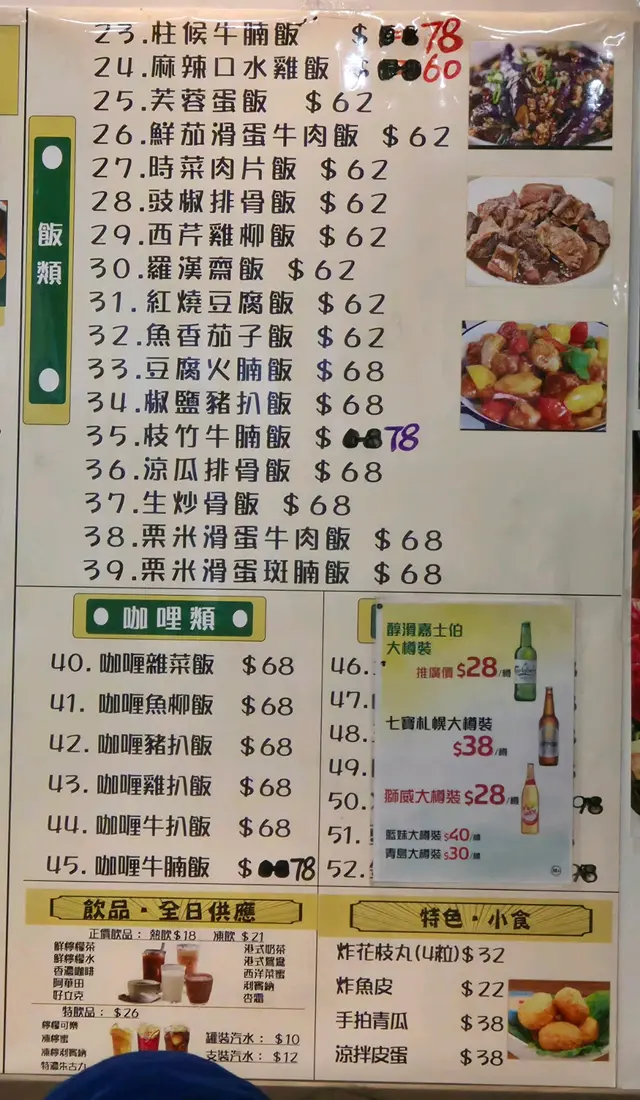 飯類
23.柱候牛腩飯 $ 78
24.麻辣口水雞飯 $ 60
25.芙蓉蛋飯 $62
26.鮮茄滑蛋牛肉飯 $62
27.時菜肉片飯 $62
28.豉椒排骨飯 $62
29.西芹雞柳飯 $62
30.羅漢齋飯 $62
31.紅燒豆腐飯 $62
32.魚香茄子飯 $62
33.豆腐火腩飯 $68
34.椒鹽豬扒飯 $68
35.枝竹牛腩飯 $ 78
36.涼瓜排骨飯 $68
37.生炒骨飯 $68
38.栗米滑蛋牛肉飯 $68
39.栗米滑蛋斑腩飯 $68
咖哩類
40.咖喱雜菜飯 $68
41.咖喱魚柳飯 $68
42.咖喱豬扒飯 $68
43.咖喱雞扒飯 $68
44.咖喱牛扒飯 $68
45.咖喱牛腩飯 $ 78
46.
47.
48.
49.
50.
51.
52.
醇滑嘉士伯
大樽裝
推廣價$28/樽
七寶札幌大樽裝
$38/樽
獅威大樽裝$28/樽
藍妹大樽裝$40/樽
青島大樽裝$30/樽
飲品·全日供應
正價飲品： 熱飲$18 凍飲$21
鮮檸檬茶 港式奶茶
鮮檸檬水 港式鴛鴦
香濃咖啡 西洋菜蜜
阿華田 利賓納
好立克 杏霜
特飲品：$26
檸檬可樂
凍檸蜜
凍檸利賓納
特濃朱古力
罐裝汽水：$10
支裝汽水：$12
特色·小食
炸花枝丸(4粒)$32
炸魚皮 $22
手拍青瓜 $38
涼拌皮蛋 $38